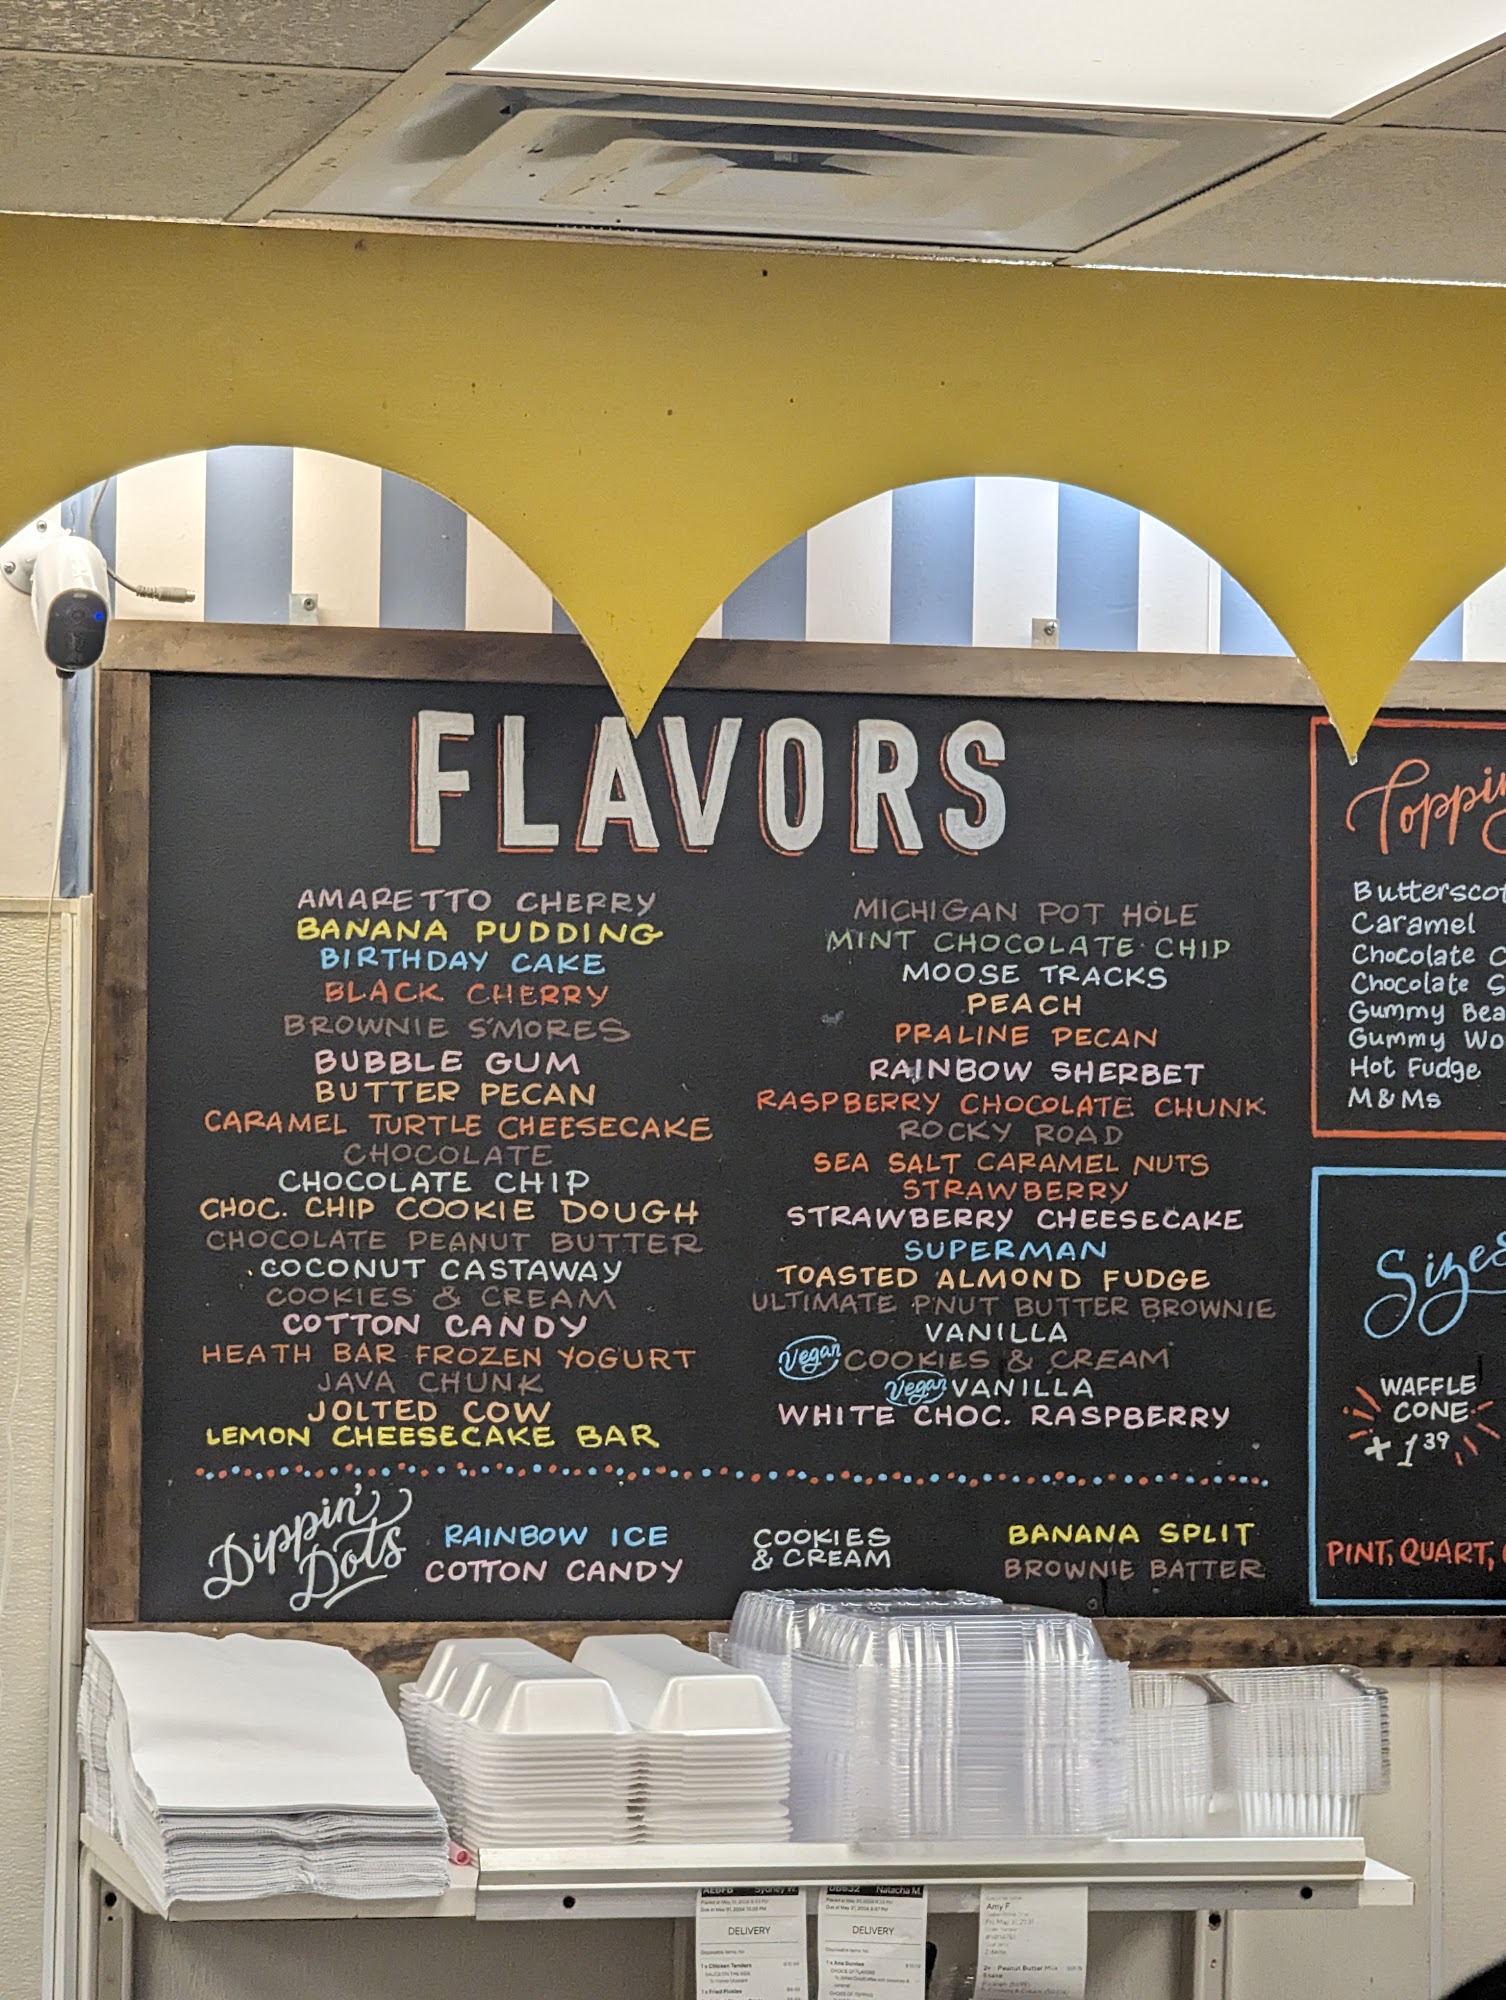 FLAVORS
AMARETTO CHERRY
BANANA PUDDING
BIRTHDAY CAKE
BLACK CHERRY
BROWNIE S'MORES
BUBBLE GUM
BUTTER PECAN
CARAMEL TURTLE CHEESECAKE
CHOCOLATE
CHOCOLATE CHIP
CHOC. CHIP COOKIE DOUGH
CHOCOLATE PEANUT BUTTER
COCONUT CASTAWAY
COOKIES & CREAM
COTTON CANDY
HEATH BAR FROZEN YOGURT
JAVA CHUNK
JOLTED COW
LEMON CHEESECAKE BAR
MICHIGAN POT HOLE
MINT CHOCOLATE CHIP
MOOSE TRACKS
PEACH
PRALINE PECAN
RAINBOW SHERBET
RASPBERRY CHOCOLATE CHUNK
ROCKY ROAD
SEA SALT CARAMEL NUTS
STRAWBERRY
STRAWBERRY CHEESECAKE
SUPERMAN
TOASTED ALMOND FUDGE
ULTIMATE P'NUT BUTTER BROWNIE
VANILLA
Vegan COOKIES & CREAM
Vegan VANILLA
WHITE CHOC. RASPBERRY
Dippin' Dots
RAINBOW ICE
COTTON CANDY
COOKIES
& CREAM
BANANA SPLIT
BROWNIE BATTER
Toppin
Butterscot
Caramel
Chocolate C
Chocolate S
Gummy Bea
Gummy Wo
Hot Fudge
M&Ms
Sizes
WAFFLE
CONE
+ 1 39
PINT, QUART,
Sydney W.
DELIVERY
1 x Chicken Tenders
1 x Fried Pickles
Natacha M.
DELIVERY
Amy F